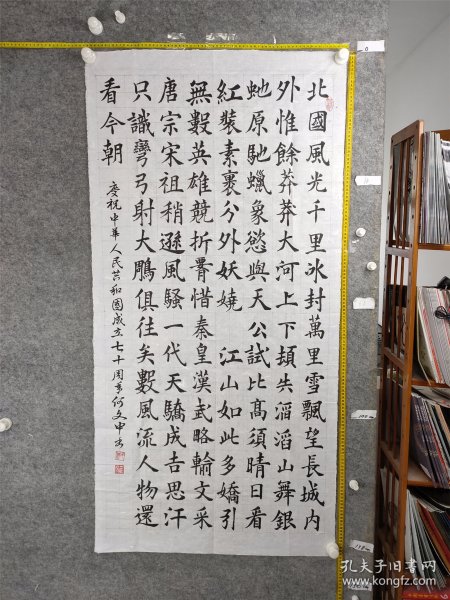 北國風光千里冰封萬里雪飄望長城内
外惟餘莽莽大河上下頓失滔滔山舞銀
虵原馳蠟象慾與天公試比高須晴日看
紅裝素裹分外妖嬈 江山如此多嬌引
無數英雄競折腰惜秦皇漢武略輸文采
唐宗宋祖稍遜風騷一代天驕成吉思汗
只識彎弓射大鵰俱往矣數風流人物還
看今朝
慶祝中華人民共和國成立七十周年何文申書
孔夫子旧书网
www.kongfz.com